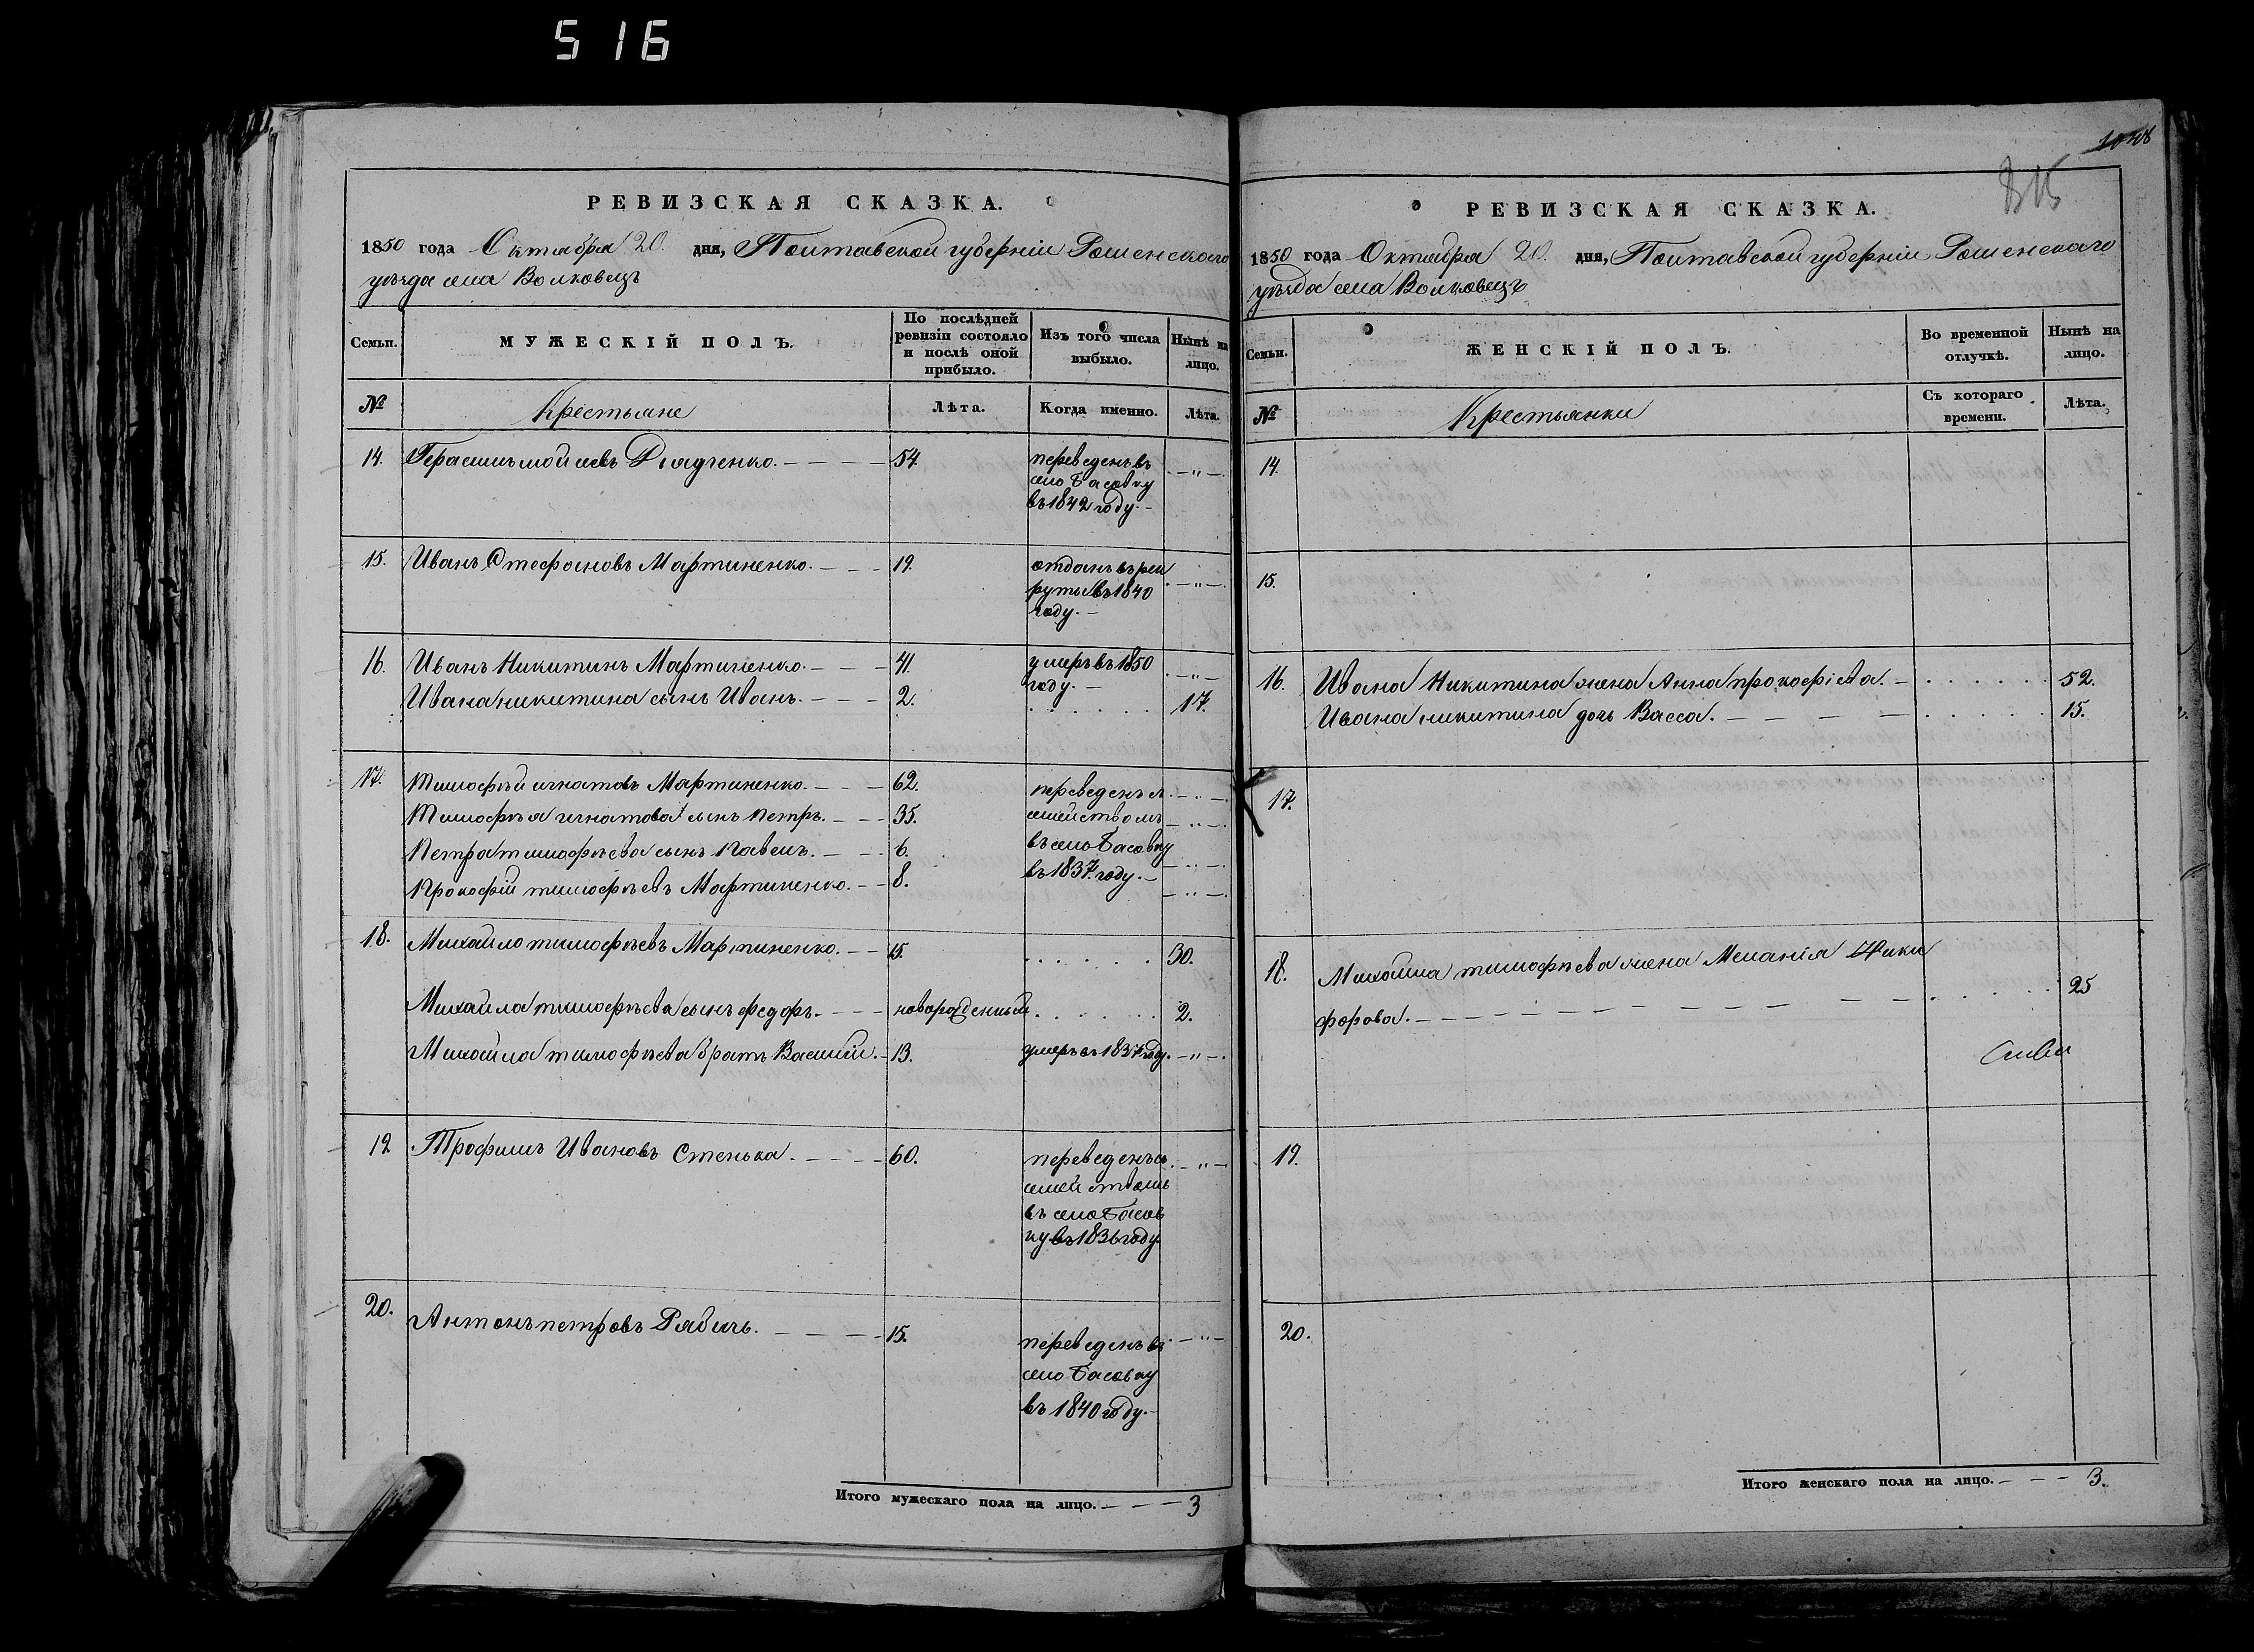 516
РЕВИЗСКАЯ СКАЗКА.
1850 года Октября 20. дня, Полтавской губерніи Роменского
уѣзда села Волковецъ
Семьи.
МУЖЕСКІЙ ПОЛЪ.
По послѣдней ревизіи состояло и послѣ оной прибыло.
Изъ того числа выбыло.
Нынѣ на лицо.
№
Крестьяне
Лѣта.
Когда именно.
Лѣта.
14. Герасимъ мойсеевъ Дьяченко. — — — — 54. переведенъ въ — „ —
село Басовку
въ 1842 году. —
15. Иванъ Стефановъ Мартиненко. — — — 19. отданъ въ рек — „ —
руты въ 1840
году. —
16. Иванъ Никитинъ Мартиненко. — — — 41. умеръ въ 1850 — „ —
году. —
Ивана никитина сынъ Иванъ. — — — 2. . . . . . . 17.
17. Тимофѣй игнатовъ Мартиненко. — — — 62. переведенъ съ — „ —
Тимофѣя игнатова сынъ Петръ. — — — 35. семействомъ — „ —
Петра тимофѣева сынъ Павелъ. — — 6. въ село Басовку — „ —
Прокофій тимофѣевъ Мартиненко. — — 8. въ 1837. году. — — „ —
18. Михайло тимофѣевъ Мартиненко. — — 15. . . . . . . 30.
Михайла тимофѣева сынъ федоръ. — — — новорожденный . . . . . . 2.
Михайла тимофѣева братъ Василій. — 13. умеръ въ 1837 году. — „ —
19 Трофимъ Ивановъ Стенька. — — — — 60. переведенъ съ — „ —
семействомъ
въ село Басов
ку въ 1836 году
20. Антонъ петровъ Рябичь. — — — — 15. переведенъ въ — „ —
село Басовку
въ 1840 году. —
Итого мужескаго пола на лицо. — — — 3
РЕВИЗСКАЯ СКАЗКА.
1850 года Октября 20. дня, Полтавской губерніи Роменскаго
уѣзда села Волковецъ
Семьи.
ЖЕНСКІЙ ПОЛЪ.
Во временной отлучкѣ.
Нынѣ на лицо.
№
Крестьянки
Съ котораго времени.
Лѣта.
14.
15.
16. Ивана Никитина жена Анна прокофіева. — . . . . . . 52.
Ивана никитина дочь Васса. — — — — . . . . . . 15.
17.
18. Михайла тимофѣева жена Меланія Ники
форова. — — — — — — — — — — . . . . . 25
19.
20.
Итого женскаго пола на лицо. — — — 3.